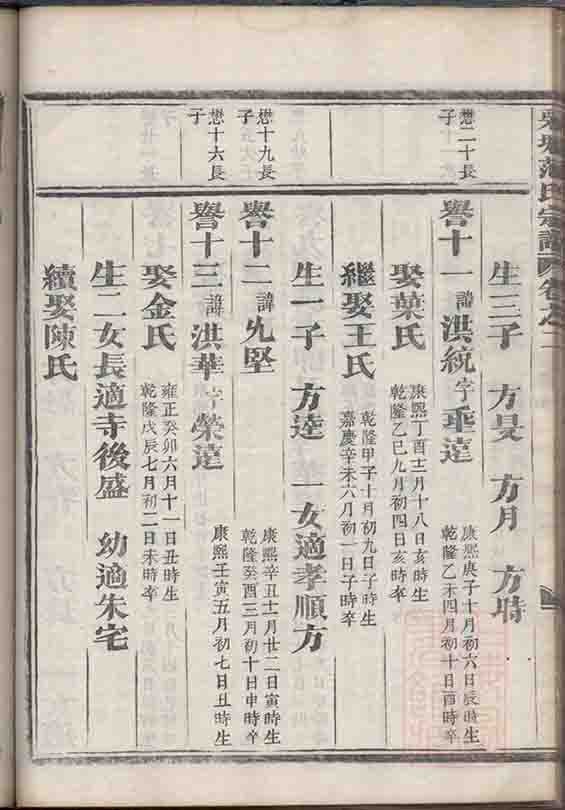 范氏宗譜 卷之二
生三子 方旻 方月 方時
懋二十長子
譽十一 諱洪統 字垂達 康熙庚子十月初六日辰時生 乾隆乙未四月初十日酉時卒
娶葉氏 康熙丁酉十二月十八日亥時生 乾隆乙巳九月初四日亥時卒
繼娶王氏 乾隆甲子十月初九日子時生 嘉慶辛未六月初一日子時卒
生一子 方逵 一女適孝順方
懋十九長子
譽十二 諱允堅 康熙辛丑十一月廿二日寅時生 乾隆癸酉三月初十日申時卒
懋十六長子
譽十三 諱洪華 字榮達 康熙壬寅五月初七日丑時生
娶金氏 雍正癸卯六月十一日丑時生 乾隆戊辰七月初二日未時卒
生二女長適寺後盛 幼適朱宅
續娶陳氏